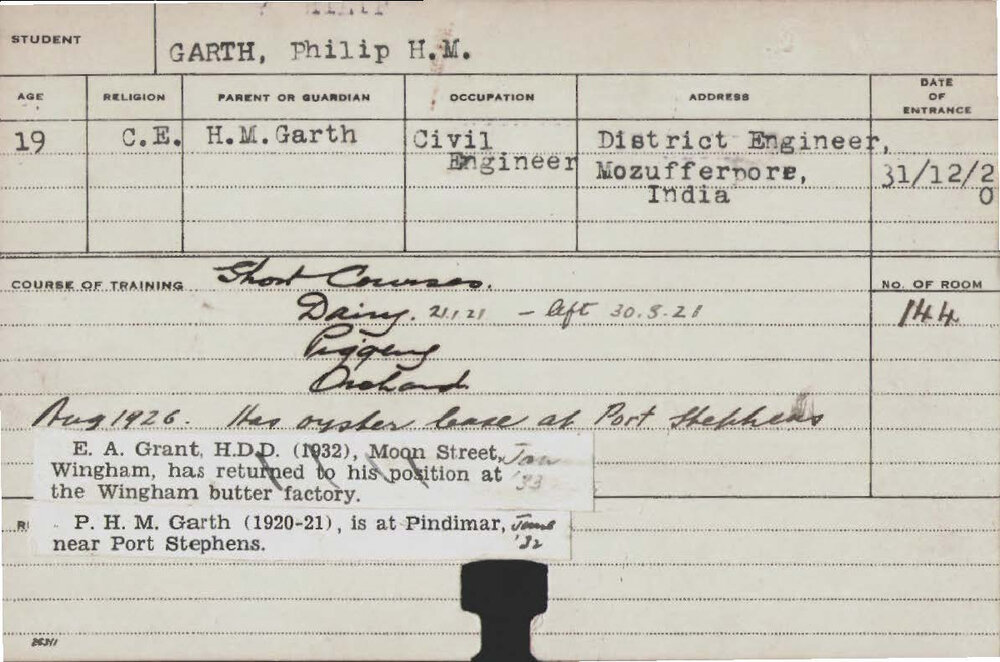 STUDENT
GARTH, Philip H.M.
AGE RELIGION PARENT OR GUARDIAN OCCUPATION ADDRESS DATE OF ENTRANCE
19 C.E. H.M.Garth Civil Engineer District Engineer,
Mozufferpore, 31/12/20
India
COURSE OF TRAINING Short Courses. No. OF ROOM
Dairy. 21.1.21 - left 30.8.21 144
Piggery
Orchard
Aug 1926. Has oyster lease at Port Stephens
E. A. Grant, H.D.D. (1932), Moon Street, Jan
Wingham, has returned to his position at '33
the Wingham butter factory.
P. H. M. Garth (1920-21), is at Pindimar, June
near Port Stephens. '32
26341